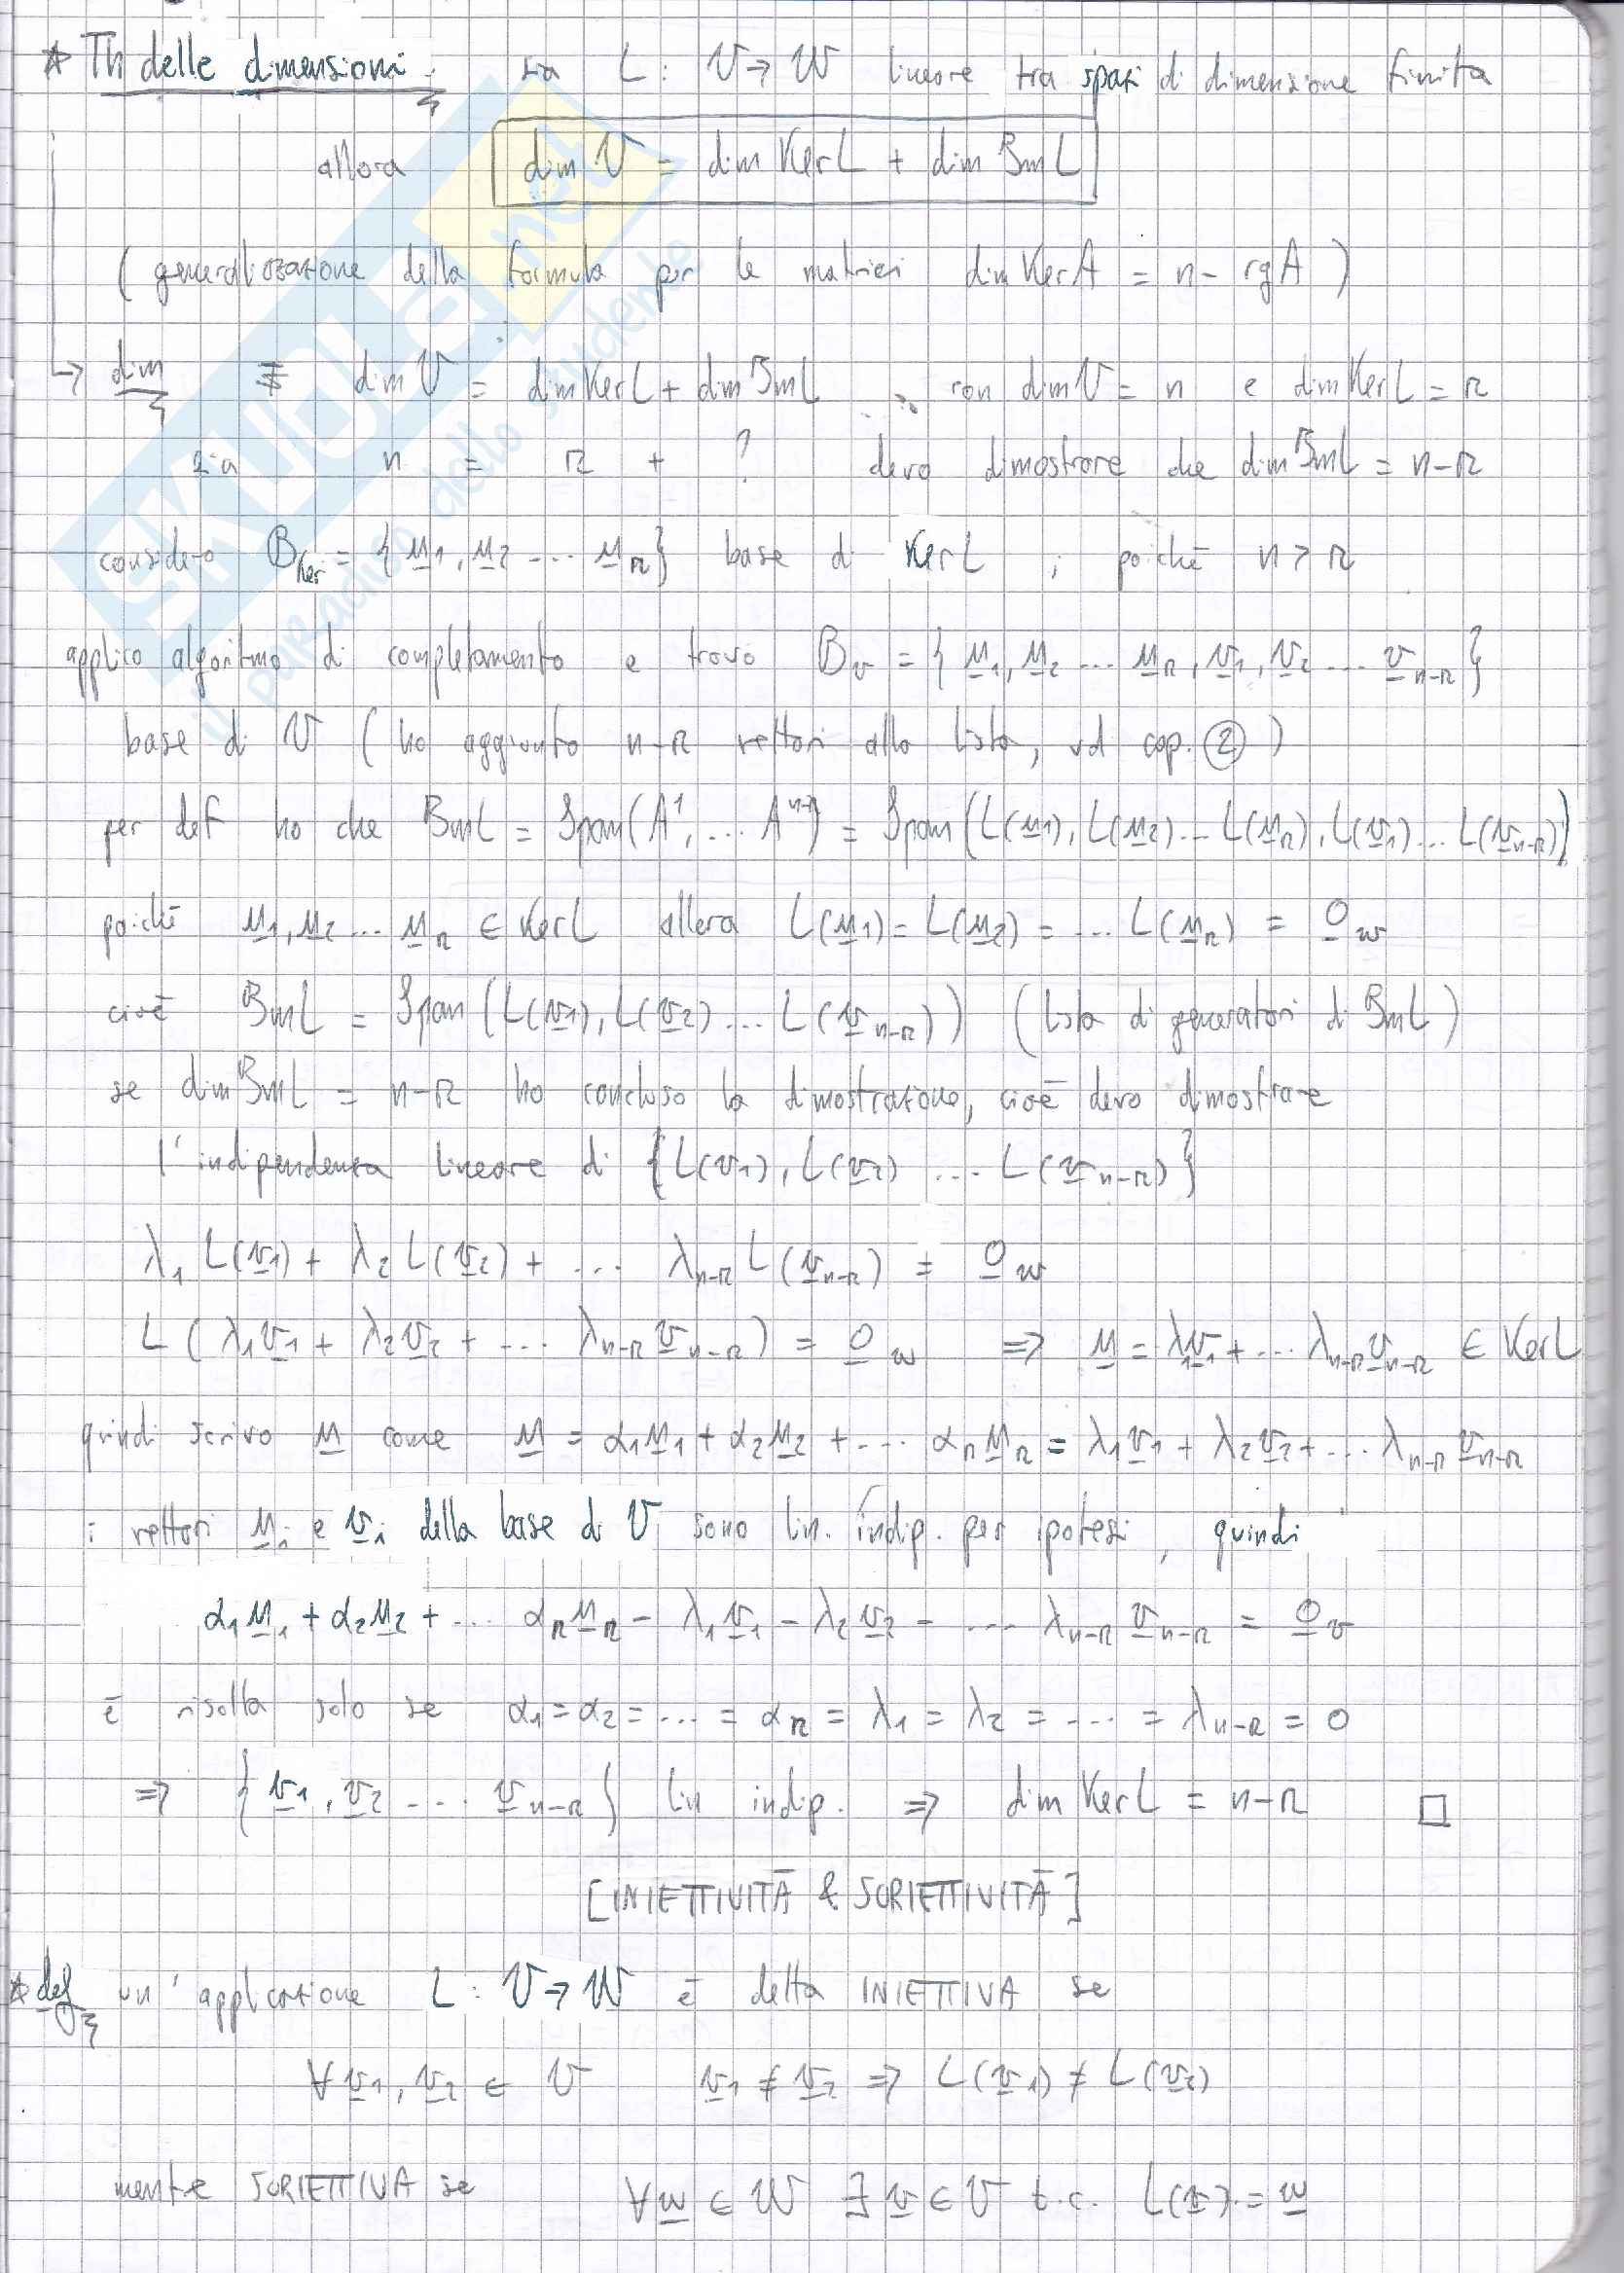 * Th delle dimensioni. sia L: V → W lineare tra spazi di dimensione finita
allora dim V = dim Ker L + dim Im L
( generalizzazione della formula per le matrici dim Ker A = n - rg A )
→ dim dim V = dim Ker L + dim Im L con dim V = n e dim Ker L = r
sia n = r + ? devo dimostrare che dim Im L = n-r
considero B_Ker = { u1, u2 ... ur } base di Ker L ; poichè n > r
applico algoritmo di completamento e trovo B_V = { u1, u2 ... ur, v1, v2 ... v_n-r }
base di V ( ho aggiunto n-r vettori alla lista, vd cap. ② )
per def ho che Im L = Span( A¹, ... Aⁿ ) = Span ( L(u1), L(u2) ... L(ur), L(v1) ... L(v_n-r) )
poichè u1, u2 ... ur ∈ Ker L allora L(u1) = L(u2) = ... L(ur) = 0_W
cioè Im L = Span ( L(v1), L(v2) ... L(v_n-r) ) ( lista di generatori di Im L )
se dim Im L = n-r ho concluso la dimostrazione, cioè devo dimostrare
l'indipendenza lineare di { L(v1), L(v2) ... L(v_n-r) }
λ1 L(v1) + λ2 L(v2) + ... λ_n-r L(v_n-r) = 0_W
L ( λ1 v1 + λ2 v2 + ... λ_n-r v_n-r ) = 0_W ⇒ u = λ1 v1 + ... λ_n-r v_n-r ∈ Ker L
quindi scrivo u come u = α1 u1 + α2 u2 + ... αr ur = λ1 v1 + λ2 v2 + ... λ_n-r v_n-r
i vettori ui e vi della base di V sono lin. indip. per ipotesi, quindi
α1 u1 + α2 u2 + ... αr ur - λ1 v1 - λ2 v2 - ... λ_n-r v_n-r = 0_V
è risolta solo se α1 = α2 = ... = αr = λ1 = λ2 = ... = λ_n-r = 0
⇒ { v1, v2 ... v_n-r } lin indip. ⇒ dim Ker L = n-r □
[ INIETTIVITÀ & SURIETTIVITÀ ]
* def un'applicazione L: V → W è detta INIETTIVA se
∀ v1, v2 ∈ V v1 ≠ v2 ⇒ L(v1) ≠ L(v2)
mentre SURIETTIVA se ∀ w ∈ W ∃ v ∈ V t.c. L(v) = w
SKUOLA.net
il paradiso dello studente